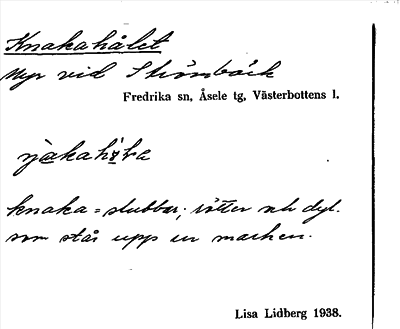 Knakahålet
Myr vid Strömbäck
Fredrika sn, Åsele tg, Västerbottens l.
knaka = stubbar, rötter och dyl.
som står upp ur marken.
Lisa Lidberg 1938.